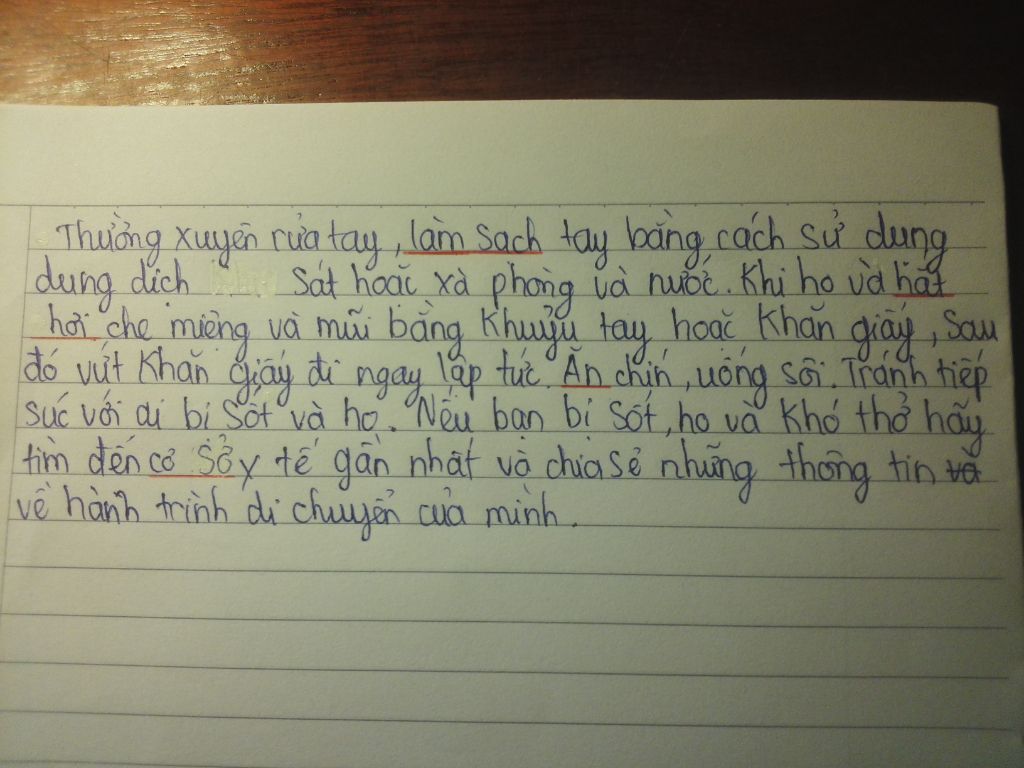 Thường xuyên rửa tay, làm sạch tay bằng cách sử dụng
dung dịch sát hoặc xà phòng và nước. Khi ho và hắt
hơi che miệng và mũi bằng khuỷu tay hoặc khăn giấy, sau
đó vứt khăn giấy đi ngay lập tức. Ăn chín, uống sôi. Tránh tiếp
súc với ai bị sốt và ho. Nếu bạn bị sốt, ho và khó thở hãy
tìm đến cơ sở y tế gần nhất và chia sẻ những thông tin và
về hành trình di chuyển của mình.